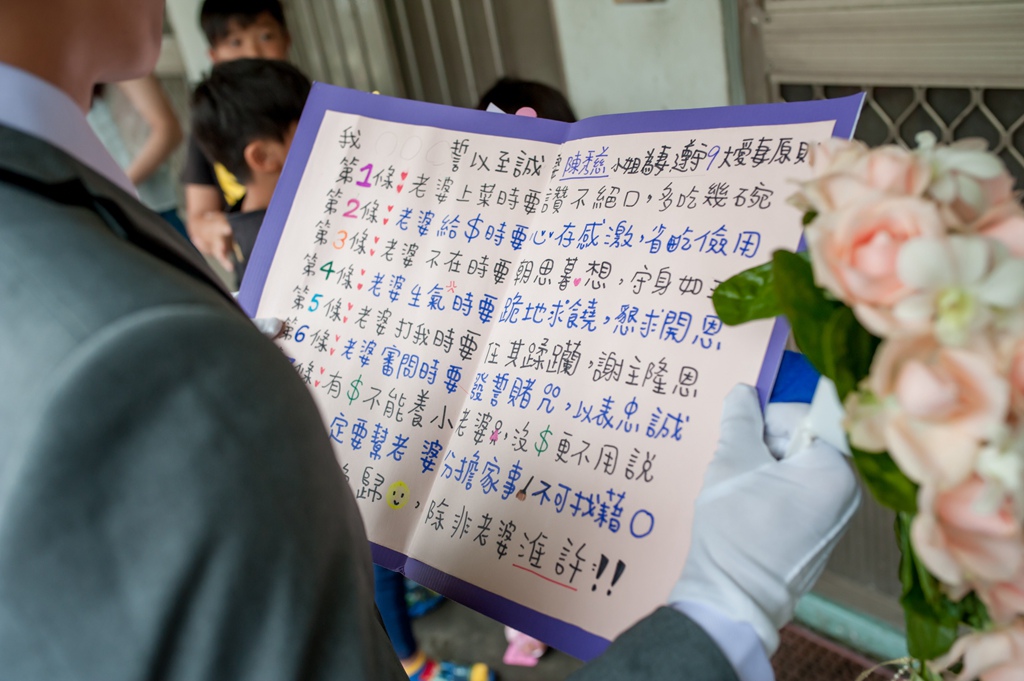 我 誓以至誠 陳秀慈小姐為妻遵守9大愛妻原則
第1條♥老婆上菜時要讚不絕口，多吃幾碗
第2條♥老婆給$時要心存感激，省吃儉用
第3條♥老婆不在時要朝思暮想，守身如
第4條♥老婆生氣時要跪地求饒，懇求開恩
第5條♥老婆打我時要任其蹂躪，謝主隆恩
第6條♥老婆審問時要發誓賭咒，以表忠誠
條♥有$不能養小老婆，沒$更不用說
定要幫老婆分擔家事，不可找藉口
歸，除非老婆准許!!